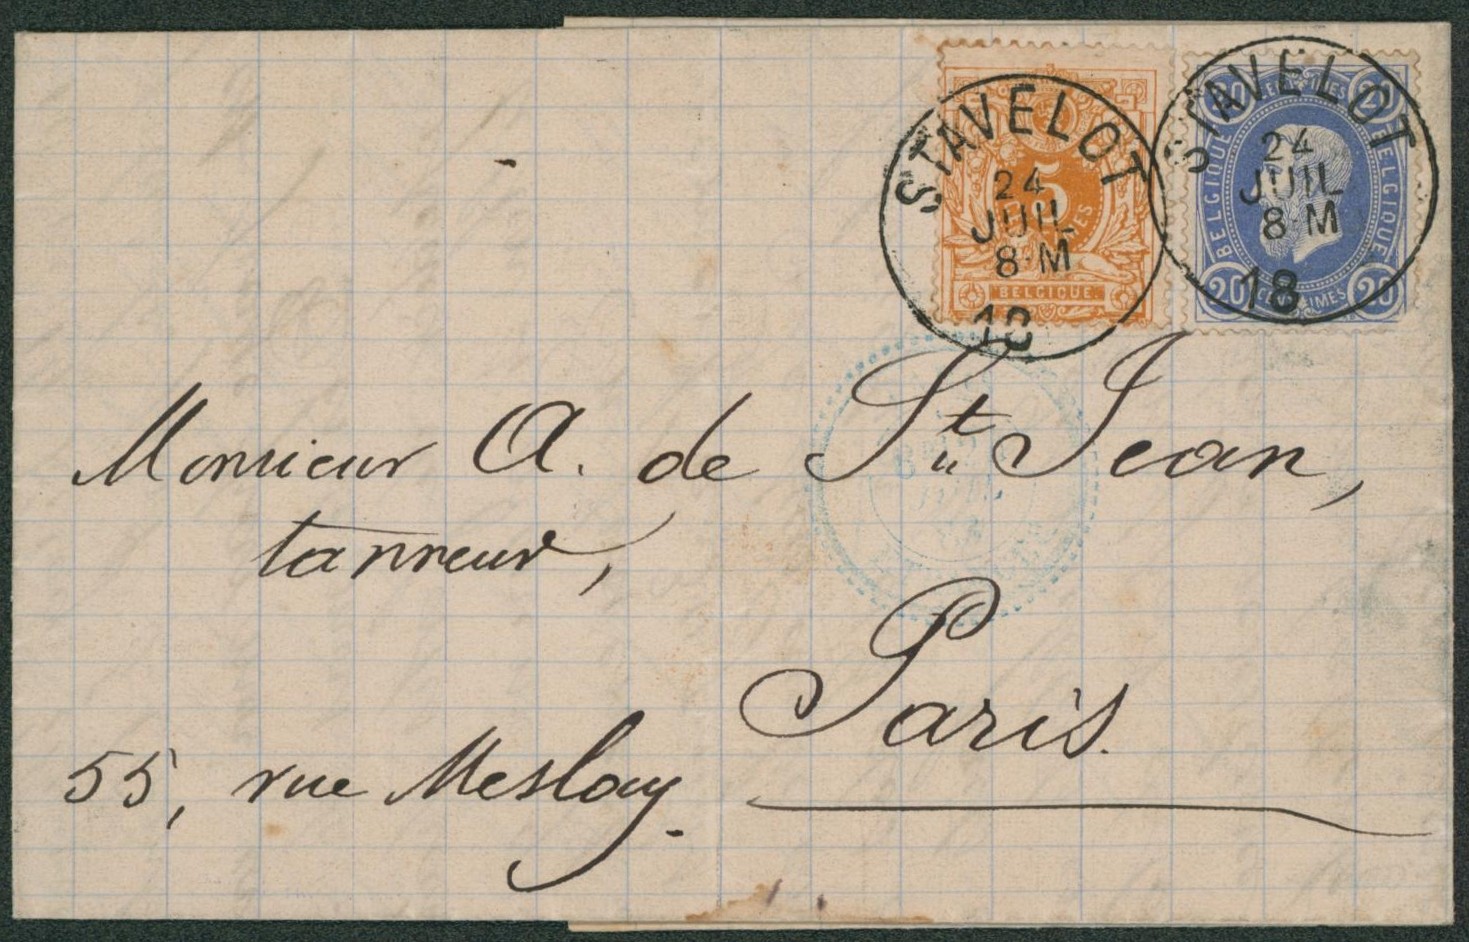 STAVELOT
24
JUIL
8·M
18
STAVELOT
24
JUIL
8·M
18
5
BELGIQUE.
20 CENTIMES 20
BELGIQUE BELGIQUE
20 CENTIMES 20
Monsieur A. de St Jean,
tanneur,
Paris.
55, rue Meslay.